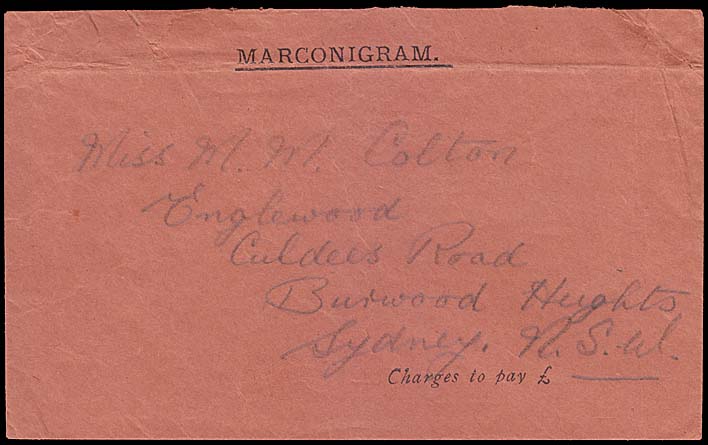 MARCONIGRAM.
Miss M. M. Colton
Englewood
Culdees Road
Burwood Heights
Sydney. N.S.W.
Charges to pay £